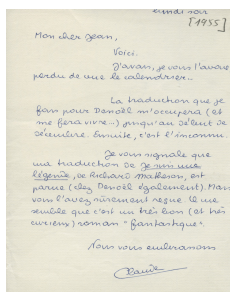 Lundi soir
[1955]
Mon cher Jean,
Voici.
J'avais, je vous l'avoue
perdu de vue le calendrier..
La traduction que je
fais pour Denoël m'occupera (et
me fera vivre...) jusqu'au début de
décembre. Ensuite, c'est l'inconnu.
Je vous signale que
ma traduction de Je suis une
légende, de Richard Matheson, est
parue (chez Denoël également). Mais
vous l'avez sûrement reçue. Il me
semble que c'est un très bon (et très
curieux) roman "fantastique".
Nous vous embrassons
Claude